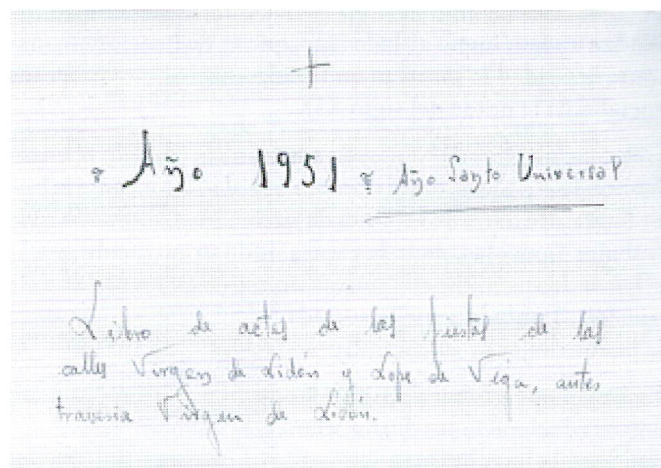 +
Año 1951 Año Santo Universal
Libro de actas de las fiestas de las
calles Virgen de Lidón y Lope de Vega, antes
travesia Virgen de Lidón.